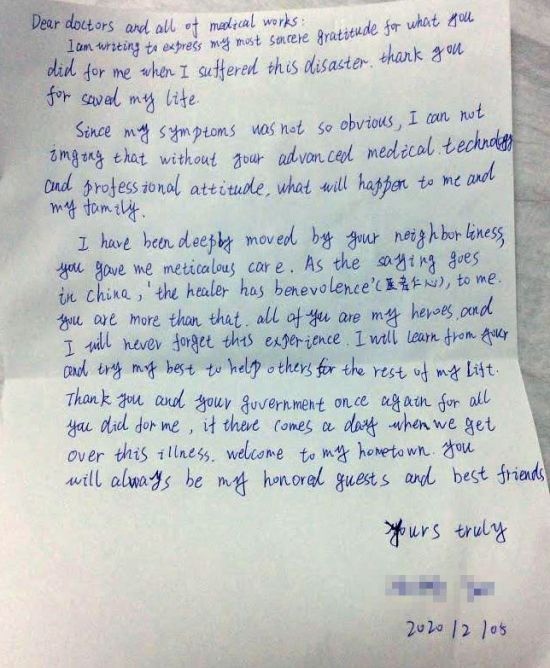 Dear doctors and all of medical works:
I am writing to express my most sincere gratitude for what you
did for me when I suffered this disaster. thank you
for saved my life.
Since my symptoms was not so obvious, I can not
imging that without your advanced medical technology
and professional attitude, what will happen to me and
my family.
I have been deeply moved by your neighborliness,
you gave me meticalous care. As the saying goes
in china, 'the healer has benevolence'(医者仁心), to me.
you are more than that. all of you are my heroes, and
I will never forget this experience. I will learn from your
and try my best to help others for the rest of my lift.
Thank you and your government once again for all
you did for me, if there comes a day when we get
over this illness. welcome to my hometown. you
will always be my honored guests and best friends
yours truly
2020/2/05